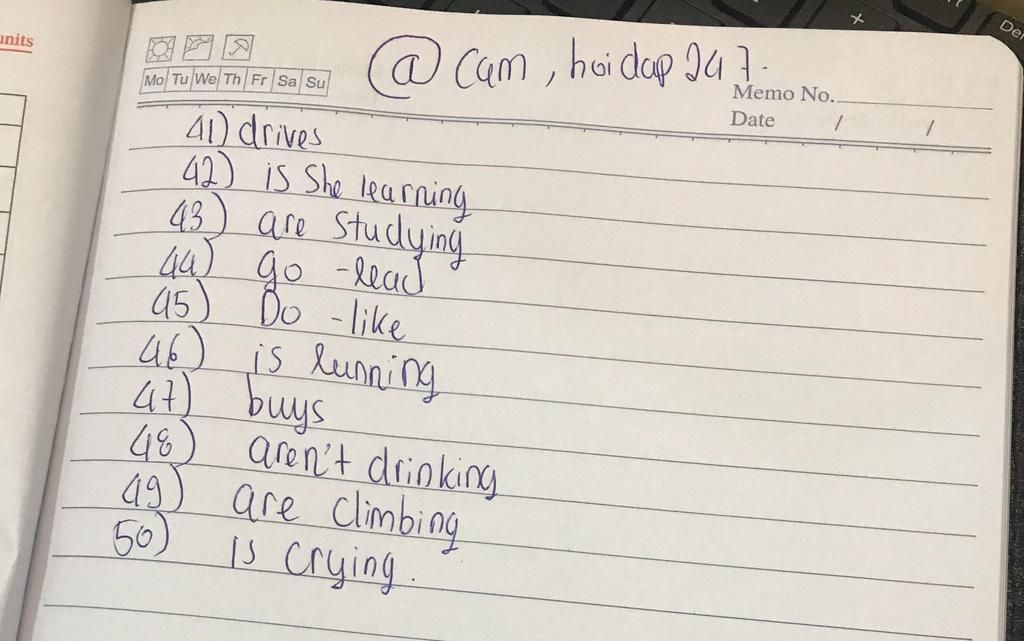 units
@ Cam, hoidap247.
Mo Tu We Th Fr Sa Su
Memo No.
Date / /
41) drives
42) is she learning
43) are studying
44) go - read
45) Do - like
46) is running
47) buys
48) aren't drinking
49) are climbing
50) is crying.
+
De